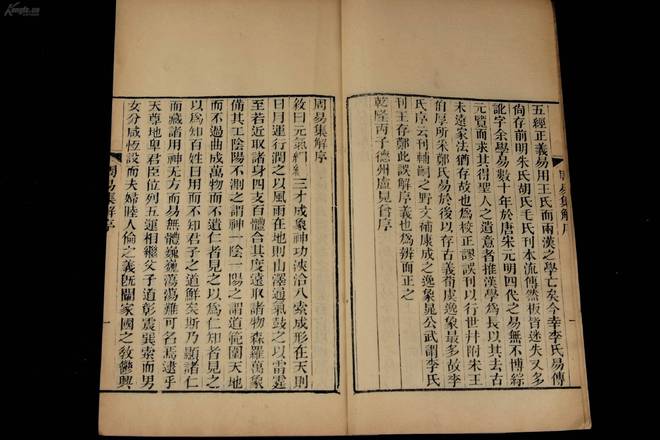 周易集解序
五經正義易用王氏而兩漢之學亡矣今幸李氏易傳
尚存前明朱氏胡氏毛氏刊本流傳然板皆迷失又多
訛字余學易數十年於唐宋元明四代之易無不博綜
元覽而求其得聖人之遺意者推漢學爲長以其去古
未遠家法猶存故也爲校正謬誤刊以行世并附宋王
伯厚所采鄭氏易於後以存古義荀虞逸象最多故李
氏序云刊輔嗣之野文補康成之逸象晁公武謂李氏
刊王存鄭此誤解序義也爲辨而正之
乾隆丙子德州盧見曾序
周易集解序
敘曰元氣絪縕三才成象神功浹洽八索成形在天則
日月運行潤之以風雨在地則山澤通氣鼓之以雷霆
至若近取諸身四支百體合其度遠取諸物森羅萬象
備其工陰陽不測之謂神一陰一陽之謂道範圍天地
而不過曲成萬物而不遺仁者見之以爲仁知者見之
以爲知百姓日用而不知君子之道鮮矣斯乃顯諸仁
而藏諸用神无方而易無體巍巍蕩蕩難可名焉逮乎
天尊地卑君臣位列五運相繼父子道彰震巽索而男
女分咸恆設而夫婦睦人倫之義旣闡家國之敎鬱興
周易集解序
一